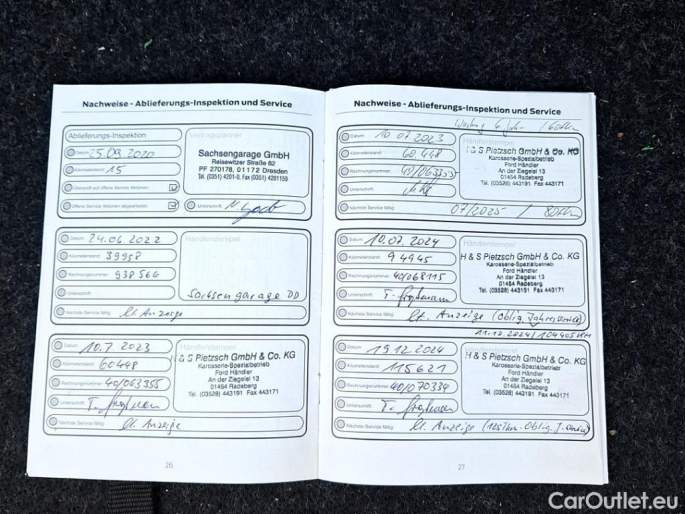 Nachweise - Ablieferungs-Inspektion und Service
Ablieferungs-Inspektion
Vertragspartner
Datum 25.09.2020
Kilometerstand 15
Sachsengarage GmbH
Reisewitzer Straße 82
PF 270178, 01172 Dresden
Tel. (0351) 4201-0, Fax (0351) 4201159
Unterschrift
Datum 24.06.2022
Händlerstempel
Kilometerstand 39958
Rechnungsnummer 938566
Unterschrift
Sachsengarage DD
Nächste Service fällig lt. Anzeige
Datum 10.7.2023
Kilometerstand 60448
Rechnungsnummer 40/063355
Unterschrift
H & S Pietzsch GmbH & Co. KG
Karosserie-Spezialbetrieb
Ford Händler
An der Ziegelei 13
01454 Radeberg
Tel. (03528) 443191 Fax 443171
Nächste Service fällig lt. Anzeige
26
Nachweise - Ablieferungs-Inspektion und Service
Datum 10.07.2023
Kilometerstand 60.448
Rechnungsnummer 40/063355
Unterschrift
H & S Pietzsch GmbH & Co. KG
Karosserie-Spezialbetrieb
Ford Händler
An der Ziegelei 13
01454 Radeberg
Tel. (03528) 443191 Fax 443171
Nächste Service fällig 07/2025 /
Datum 10.07.2024
Händlerstempel
Kilometerstand 94945
Rechnungsnummer 40/068115
Unterschrift
H & S Pietzsch GmbH & Co. KG
Karosserie-Spezialbetrieb
Ford Händler
An der Ziegelei 13
01454 Radeberg
Tel. (03528) 443191 Fax 443171
Nächste Service fällig lt. Anzeige (Oblig.
11.12.2024/104405KM
Datum 19.12.2024
Kilometerstand 115621
Rechnungsnummer 40/070334
Unterschrift
H & S Pietzsch GmbH & Co. KG
Karosserie-Spezialbetrieb
Ford Händler
An der Ziegelei 13
01454 Radeberg
Tel. (03528) 443191 Fax 443171
Nächste Service fällig lt. Anzeige
27
CarOutlet.eu